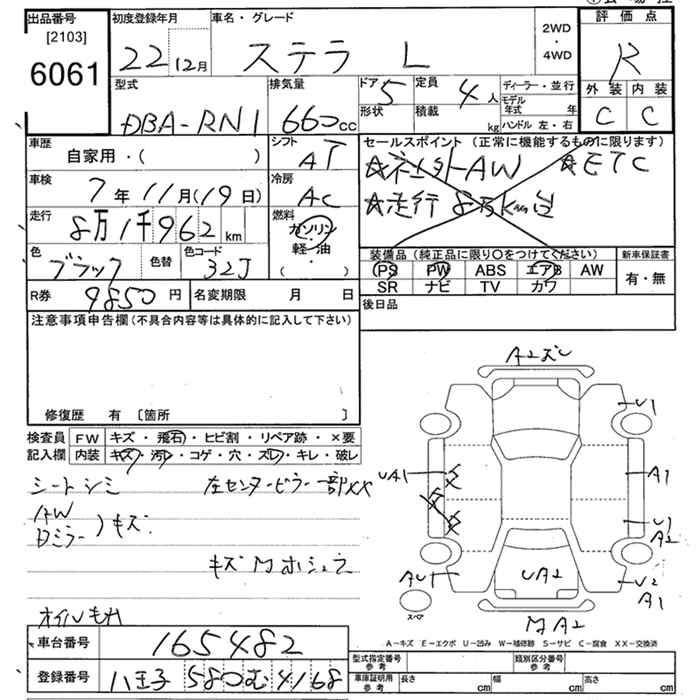 出品番号
[2103]
6061
初度登録年月
22 12月
車名・グレード
ステラ L
2WD
・
4WD
評価点
R
外装 内装
C C
型式
DBA-RN1
排気量
660cc
ドア 5
形状
定員 4人
積載 kg
ディーラー・並行
モデル年式 年
ハンドル 左・右
車歴
自家用・( )
シフト
AT
セールスポイント (正常に機能するものに限ります)
AW ☆ETC
☆走行 8万km台
車検
7年11月(19日)
冷房
AC
走行
8万1千962km
燃料
ガソリン・
軽・油
・( )
色
ブラック
色替
色コード
32J
装備品 (純正品に限り○をつけてください)
PS PW ABS エアB AW
SR ナビ TV カワ
新車保証書
有・無
R券 9850円
名変期限 月 日
後日品
注意事項申告欄 (不具合内容等は具体的に記入して下さい)
修復歴 有 [箇所 ]
検査員記入欄
FW キズ・飛石・ヒビ割・リペア跡・×要
内装 キズ・汚レ・コゲ・穴・ズレ・キレ・破レ
シートシミ 左センターピラー一部XX
AW
Dミラー )キズ
オイルもれ
A2ズレ
U1
UA1
A1
U1
A2
AU1
UA2
U2
A1
A2
スペア
A-キズ E-エクボ U-凹み W-補修跡 S-サビ C-腐食 XX-交換済
車台番号 165482
登録番号 八王子 580 む 4168
型式指定番号
参考
類別区分番号
参考
車庫証明用
参考
長さ cm 幅 cm 高さ cm